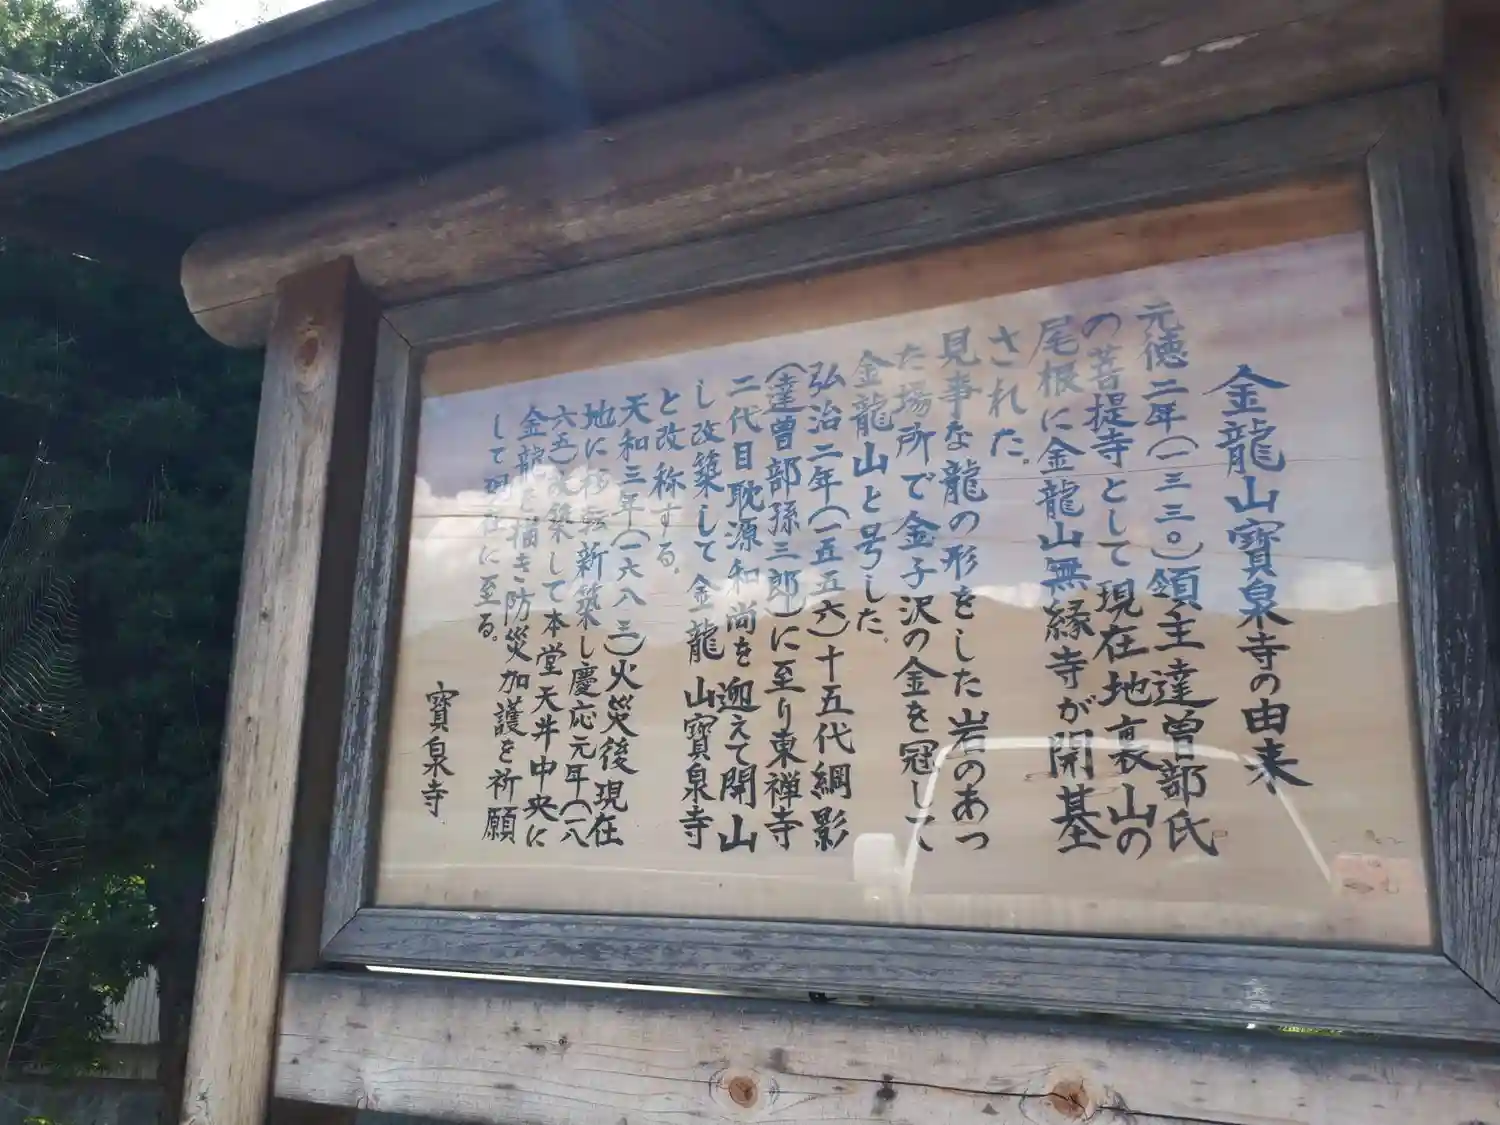 金龍山寶泉寺の由来
元徳二年(一三三〇)領主達曽部氏
の菩提寺として現在地裏山の
尾根に金龍山無縁寺が開基
された。
見事な龍の形をした岩のあっ
た場所で金子沢の金を冠して
金龍山と号した。
弘治二年(一五五六)十五代綱影
(達曽部孫三郎)に至り東禅寺
二代目耽源和尚を迎えて開山
し改築して金龍山寶泉寺
と改称する。
天和三年(一六八三)火災後現在
地に移転新築し慶応元年(一八
六五)改築して本堂天井中央に
金龍を描き防災加護を祈願
して現在に至る。
寶泉寺